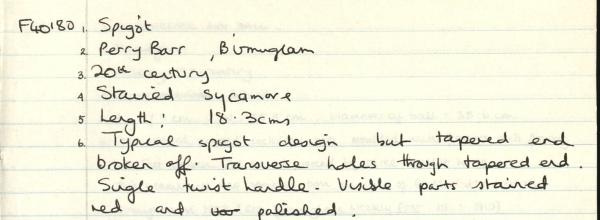 F40'80 1. Spigot
2. Perry Barr, Birmingham
3. 20th century
4 Stained Sycamore
5 Length: 18.3cms
6. Typical spigot design but tapered end
broken off. Transverse holes through tapered end.
Single twist handle. Visible parts stained
red and polished.